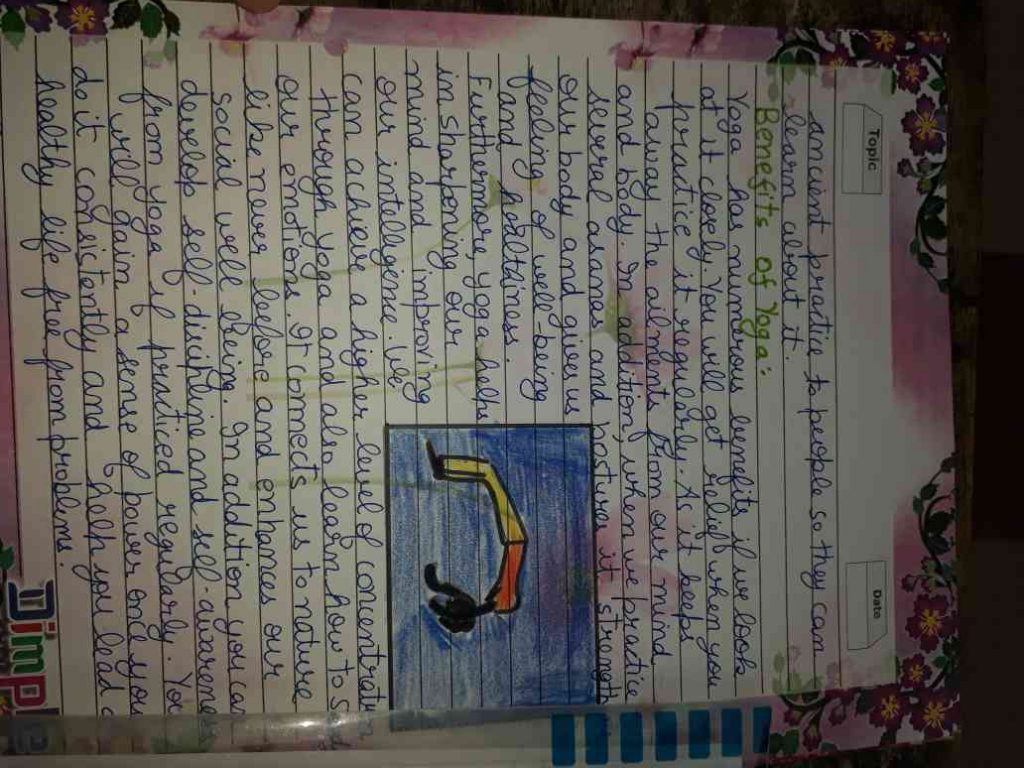 Topic
Date
ancient practice to people so they can
learn about it.
Benefits of Yoga:
Yoga has numerous benefits if we look
at it closely. You will get relief when you
practice it regularly. As it keeps
away the ailments from our mind
and body. In addition, when we practice
several asanas and postures, it strength
our body and gives us
feeling of well-being
and healtiness.
Furthermore, yoga helps
in sharpening our
mind and improving
our intelligene. We
can achieve a higher level of concentratn
through yoga and also learn how to s
our emotions. It connects us to nature
like never before and enhances our
social well being. In addition, you can
develop self-discipline and self-awarenes
from yoga if practiced regularly. You
will gain a sense of power once you
do it consistently and help you lead a
healthy life free from problems.
Dimple